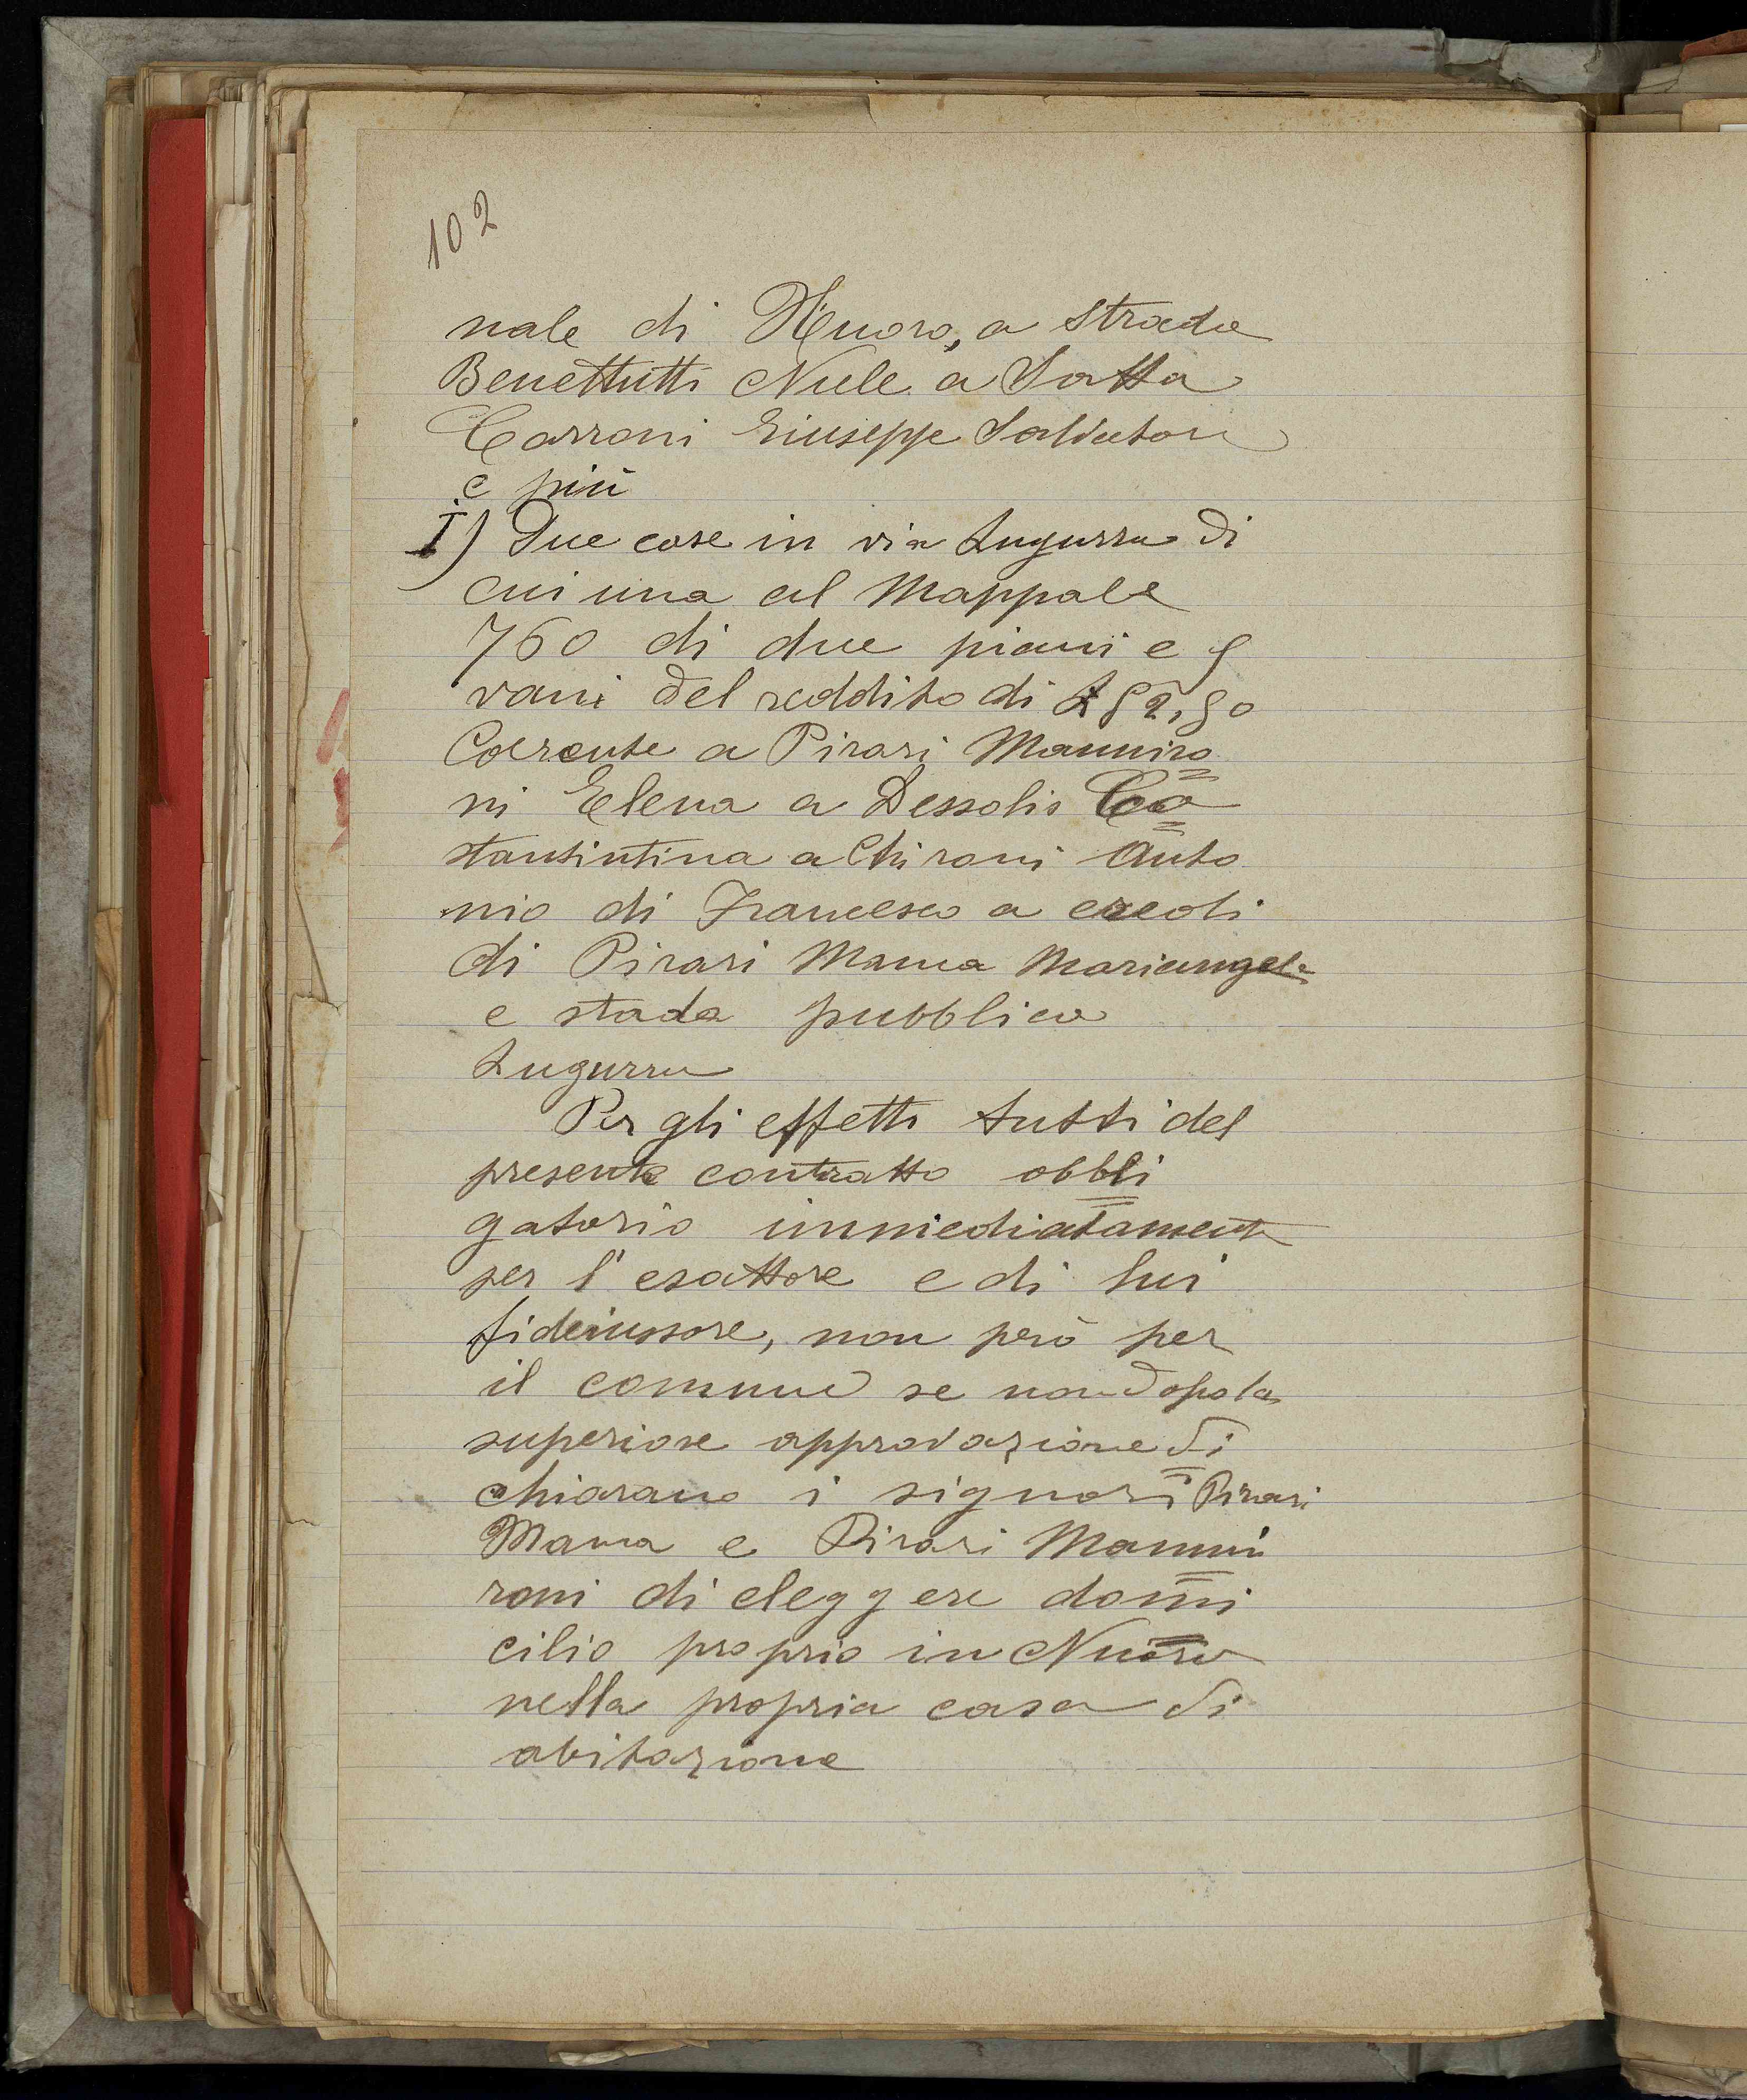 102
nale di Nuoro, a strada
Benettutti Nule a Satta
Carroni Giuseppe Salvatore
e più
I) Due case in via Lugurra di
cui una al Mappale
760 di due piani e 5
vani del reddito di L 52,50
Coerente a Pirari Manniro
ni Elena a Dessolis Co
stantintina a Chironi Anto
nio di Francesco a eredi
di Pirari Manca Mariangela
e stada pubblica
Lugurra
Per gli effetti tutti del
presente contratto obbli
gatorio immediatamente
per l'esattore e di lui
fideiussore, non però per
il comune se non dopo la
superiore approvazione di
chiarano i signori Pirari
Manca e Pirari Manni
roni di eleggere domi
cilio proprio in Nuoro
nella propria casa di
abitazione